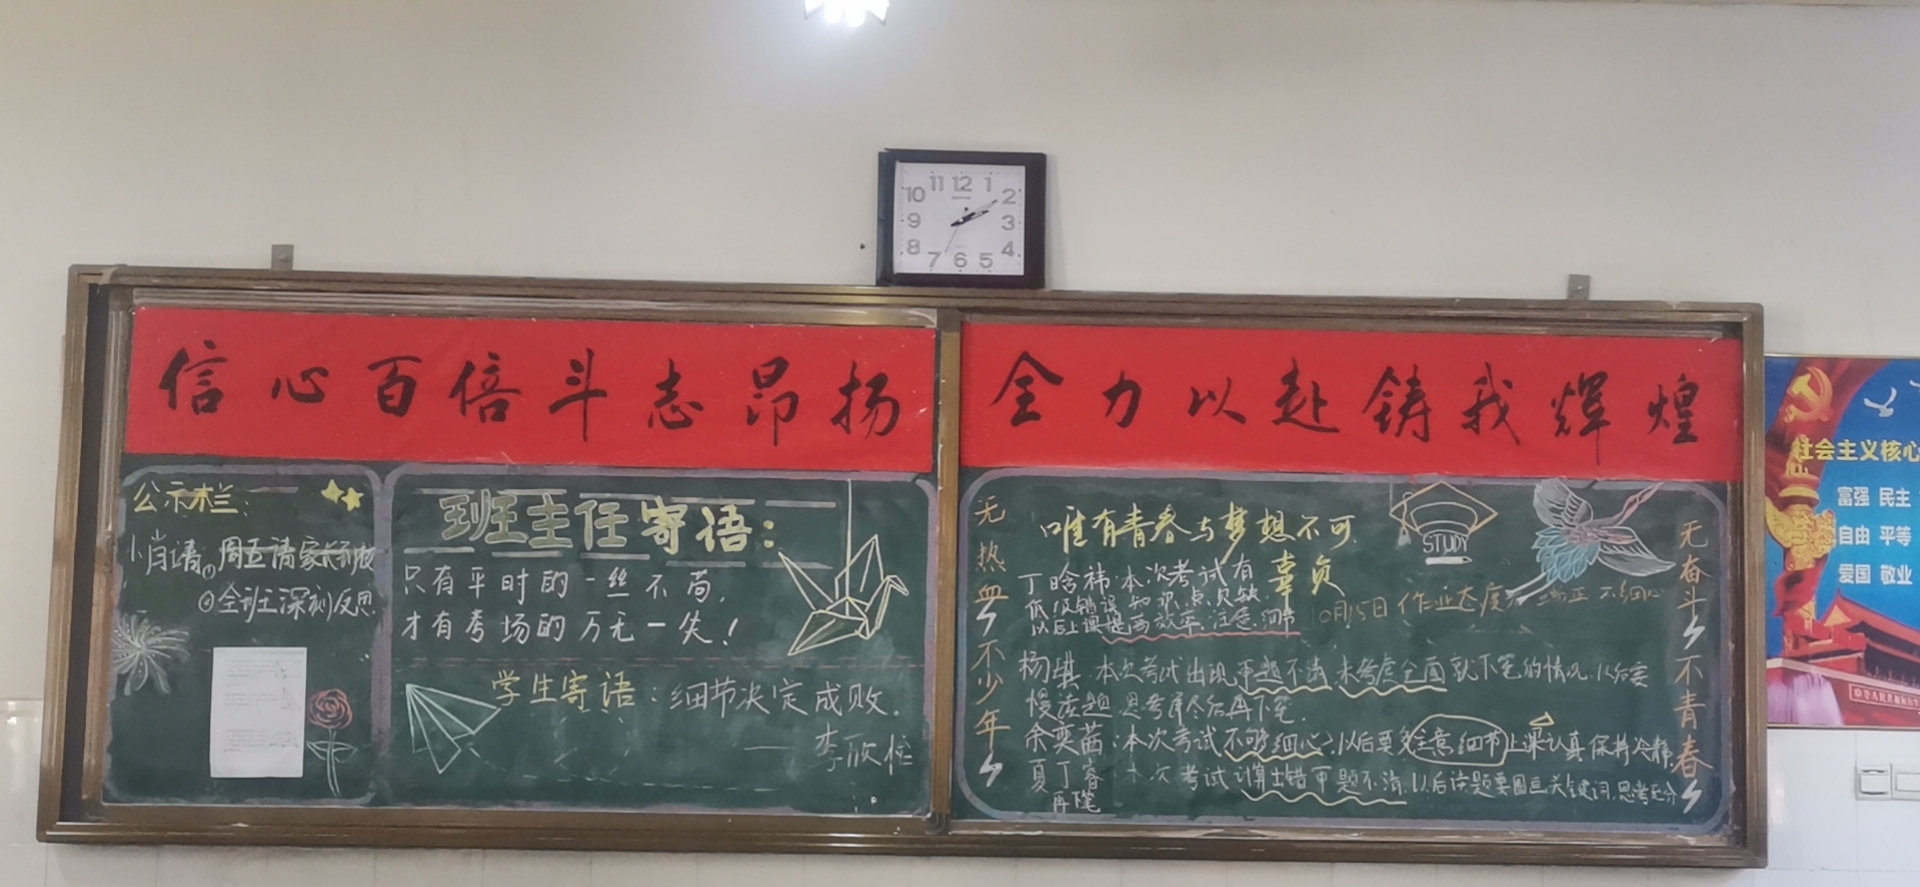 11 12 1
10 2
9 3
8 4
7 6 5
信心百倍斗志昂扬
全力以赴铸我辉煌
公示栏:
①周五请家长
②全班深刻反思
班主任寄语:
只有平时的一丝不苟,
才有考场的万无一失!
学生寄语:细节决定成败.
——李欣
无热血不少年
唯有青春与梦想不可
辜负
STUDY
丁晗祎:本次考试有
低级错误 知识点欠缺
以后上课提高效率.注意.细节
10月15日 作业态度不端正 不细心
杨娸.本次考试出现审题不清 未考虑全面就下笔的情况.以后要
慢读题 思考
余奕菡:本次考试不够细心,以后要多注意细节 上课认真 保持冷静
夏丁睿:本次考试计算出错审题不清.以后读题要圈画关键词.思考充分
再
无奋斗不青春
社会主义核心
富强 民主
自由 平等
爱国 敬业